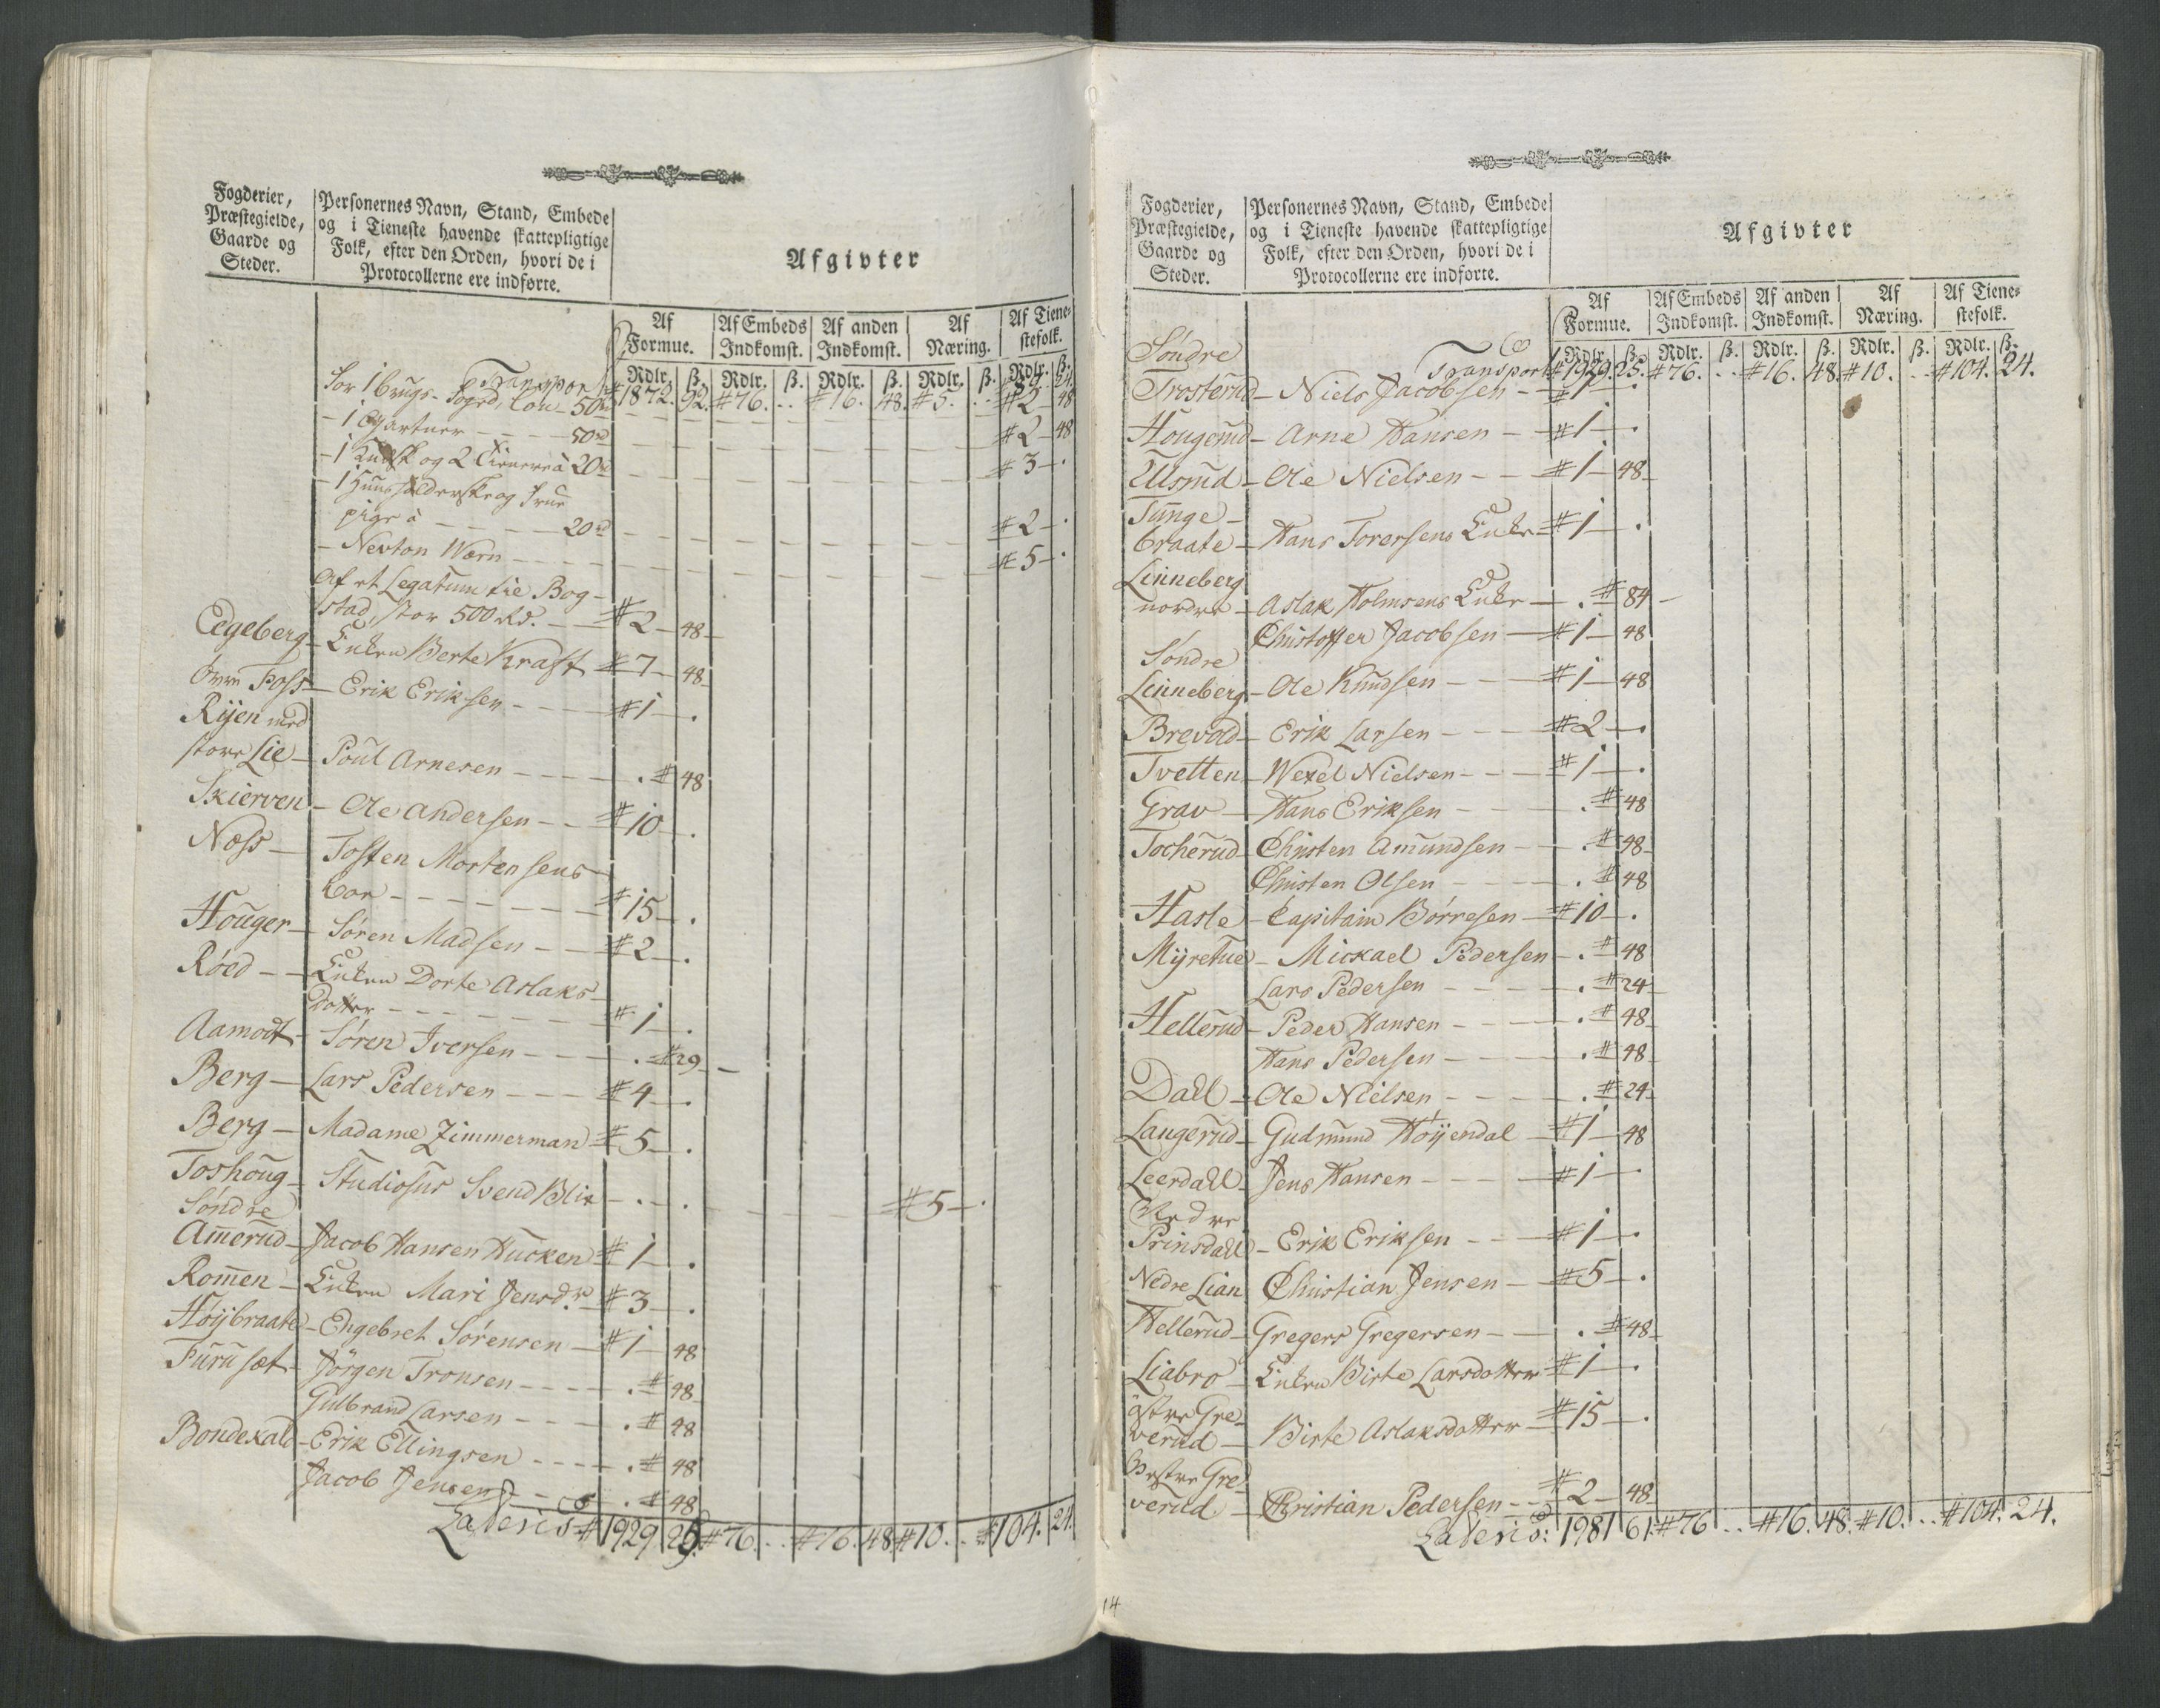 Fogderier,
Præstegielde,
Gaarde og
Steder.
Personernes Navn, Stand, Embede
og i Tieneste havende skattepligtige
Folk, efter den Orden, hvori de i
Protocollerne ere indførte.
Afgivter
Af
Formue.
Af Embeds
Indkomst.
Af anden
Indkomst.
Af
Næring.
Af Tiene-
stefolk.
Rdlr. ß. Rdlr. ß. Rdlr. ß. Rdlr. ß. Rdlr. ß.
Transport #1872. 92. #76. .. #16. 48. #5. ..
for 1 brugs- fogd, lön 50 rd #2 48
- 1 Gartner - - - 50 rd #2 - 48
- 1 Kudsk og 2 Tienere à 20 rd #3 - .
- 1 Huusholderske og Frue
pige à - - - 20 rd #2 - .
- Nevton Wærn - - - #5 - .
Af et Legatum til Bog-
stad, stor 500 Rd. - #2 - 48
Eegeberg - Enken Berte Kraft #7 - 48
övre Foss - Erik Eriksen - - - #1 - .
Rijen med
store Lie - Poul Arnesen - - - . # 48
Skierven - Ole Andersen - - #10 - .
Næss - Tosten Mortensens
Boe - - - #15 - .
Houger - Søren Madsen - - #2 - .
Röed - - Enken Dorte Aslaks-
dotter - - - #1 - .
Aamodt - Søren Iversen - - - . # 29
Berg - Lars Pedersen - - - #4 - .
Berg - Madame Zimmerman #5 - .
Toshoug - Studiosus Svend Blix - . - . #5 - .
Söndre
Amerud - Jacob Hansen Hucken #1 - .
Romen - Enken Mari Jensdr. #3 - .
Höijbraate - Engebret Sörensen - #1 - 48
Furusæt - Jörgen Tronsen - - - . # 48
Gulbrand Larsen - - - . # 48
Bondekald - Erik Ellingsen - - - . # 48
Jacob Jensen - . # 48
Lateris #1929 25. #76. .. #16. 48 #10. .. #104. 24.
Fogderier,
Præstegielde,
Gaarde og
Steder.
Personernes Navn, Stand, Embede
og i Tieneste havende skattepligtige
Folk, efter den Orden, hvori de i
Protocollerne ere indførte.
Afgivter
Af
Formue.
Af Embeds
Indkomst.
Af anden
Indkomst.
Af
Næring.
Af Tiene-
stefolk.
Rdlr. ß. Rdlr. ß. Rdlr. ß. Rdlr. ß. Rdlr. ß.
Transport #1929. 25. #76. .. #16. 48. #10. .. #104. 24.
Söndre
Trosterud - Niels Jacobsen - #1 - .
Hougerud - Arne Hansen - - #1 - .
Ulsrud - Ole Nielsen - - #1 - 48
Tunge-
braate - Hans Torersens Enke #1 - .
Linneberg
nordre - Aslak Holmsens Enke - . # 84
Christoffer Jacobsen - #1 - 48
Söndre
Linneberg - Ole Knudsen - - #1 - 48
Brevold - Erik Larsen - - - #2 - .
Tvetten - Wexel Nielsen - - #1 - .
Grav - Hans Eriksen - - . # 48
Tocherud - Christen Amundsen - - . # 48
Christen Olsen - - - . # 48
Hasle - Capitain Börresen - #10 - .
Mijretue - Mickael Pedersen - . # 48
Lars Pedersen - - - . # 24
Hellerud - Peder Hansen - - - . # 48
Hans Pedersen - - - . # 48
Dall - Ole Nielsen - - - . # 24
Langerud - Gudmund Höijendal - #1 - 48
Leerdall - Jens Hansen - - - #1 - .
Nedre
Prinsdall - Erik Eriksen - - #1 - .
Nedre Lian Christian Jensen - #5 - .
Hellerud - Gregers Gregersen - - . # 48
Liabro - Enken Birte Larsdotter #1 - .
östre Gre-
verud - Birte Aslaksdotter - #15 - .
Vestre Gre-
verud - Christian Pedersen - - #2 - 48
Lateris: 1981 61. #76 .. #16. 48. #10. .. #104. 24.
14